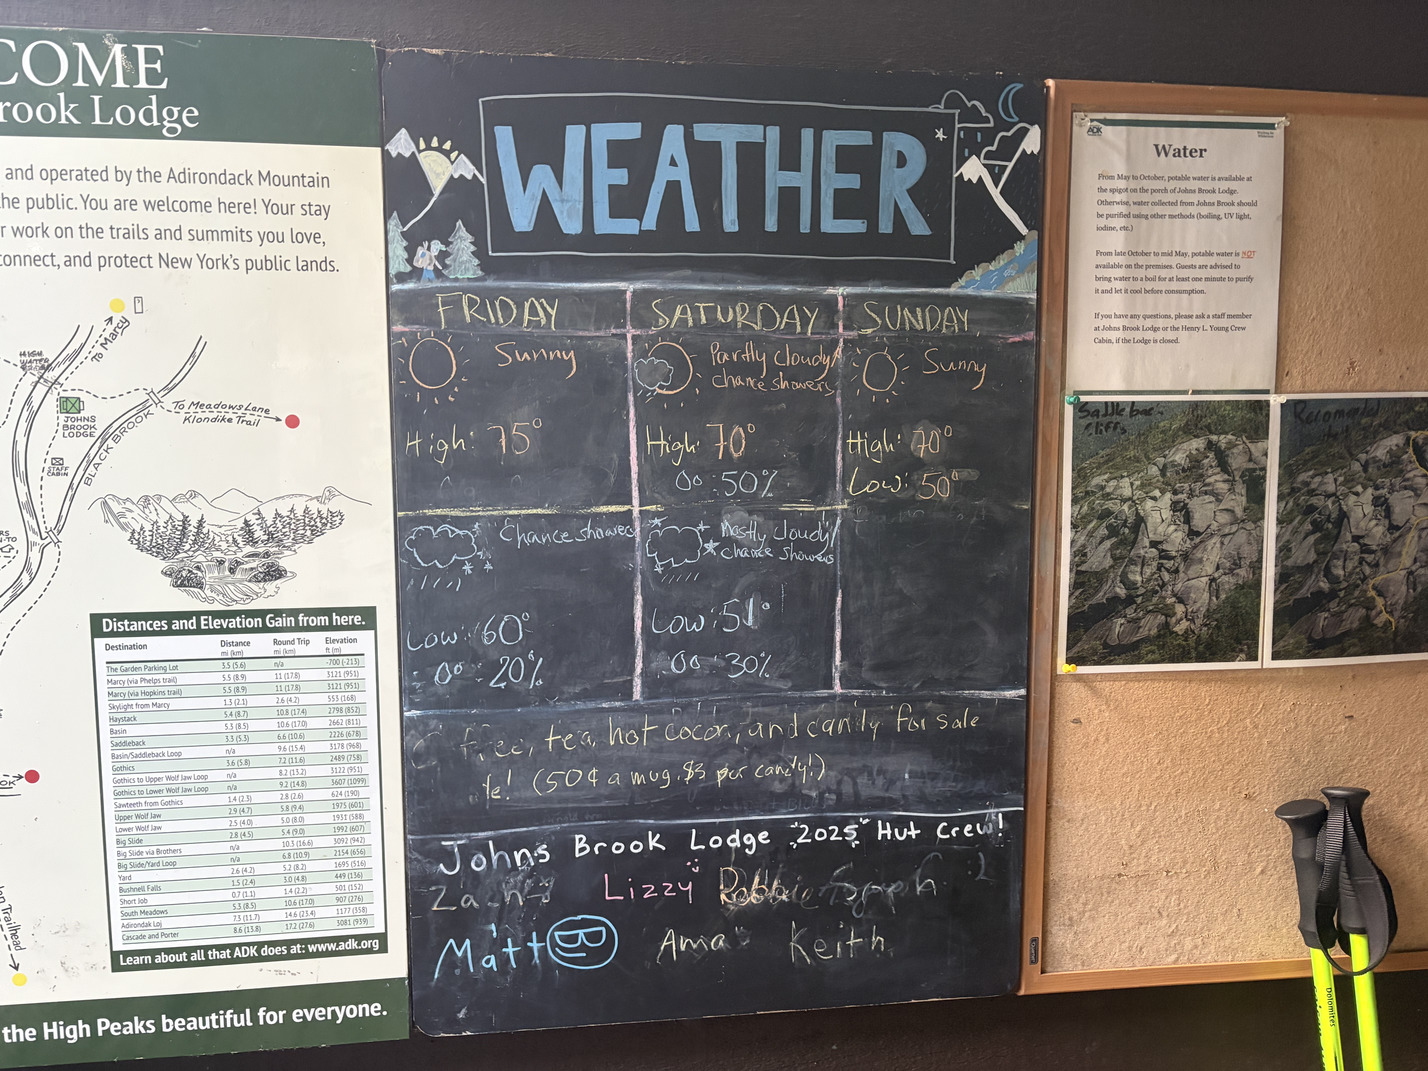 COME
rook Lodge
and operated by the Adirondack Mountain
the public. You are welcome here! Your stay
r work on the trails and summits you love,
connect, and protect New York's public lands.
To Marcy
HIGH
WATER
JOHNS
BROOK
LODGE
STAFF
CABIN
BLACK BROOK
To Meadows Lane
Klondike Trail
Trailhead
Distances and Elevation Gain from here.
Destination Distance Round Trip Elevation
mi (km) mi (km) ft (m)
The Garden Parking Lot 3.5 (5.6) n/a -700 (-213)
Marcy (via Phelps trail) 5.5 (8.9) 11 (17.8) 3121 (951)
Marcy (via Hopkins trail) 5.5 (8.9) 11 (17.8) 3121 (951)
Skylight from Marcy 1.3 (2.1) 2.6 (4.2) 553 (168)
Haystack 5.4 (8.7) 10.8 (17.4) 2798 (852)
Basin 5.3 (8.5) 10.6 (17.0) 2662 (811)
Saddleback 3.3 (5.3) 6.6 (10.6) 2226 (678)
Basin/Saddleback Loop n/a 9.6 (15.4) 3178 (968)
Gothics 3.6 (5.8) 7.2 (11.6) 2489 (758)
Gothics to Upper Wolf Jaw Loop n/a 8.2 (13.2) 3122 (951)
Gothics to Lower Wolf Jaw Loop n/a 9.2 (14.8) 3607 (1099)
Sawteeth from Gothics 1.4 (2.3) 2.8 (2.6) 624 (190)
Upper Wolf Jaw 2.9 (4.7) 5.8 (9.4) 1975 (601)
Lower Wolf Jaw 2.5 (4.0) 5.0 (8.0) 1931 (588)
Big Slide 2.8 (4.5) 5.4 (9.0) 1992 (607)
Big Slide via Brothers n/a 10.3 (16.6) 3092 (942)
Big Slide/Yard Loop n/a 6.8 (10.9) 2154 (656)
Yard 2.6 (4.2) 5.2 (8.2) 1695 (516)
Bushnell Falls 1.5 (2.4) 3.0 (4.8) 449 (136)
Short Job 0.7 (1.1) 1.4 (2.2) 501 (152)
South Meadows 5.3 (8.5) 10.6 (17.0) 907 (276)
Adirondack Loj 7.3 (11.7) 14.6 (23.4) 1177 (358)
Cascade and Porter 8.6 (13.8) 17.2 (27.6) 3081 (939)
Learn about all that ADK does at: www.adk.org
the High Peaks beautiful for everyone.
WEATHER
FRIDAY SATURDAY SUNDAY
Sunny
High: 75°
Chance showers
Low: 60°
: 20%
Partly cloudy/
chance showers
High: 70°
: 50%
Mostly cloudy/
chance showers
Low: 51°
: 30%
Sunny
High: 70°
Low: 50°
ffee, tea, hot cocoa, and candy for sale
(50¢ a mug. $3 per candy!)
Johns Brook Lodge 2025 Hut Crew!
Lizzy Robbie
Matt Ama Keith
ADK
Water
From May to October, potable water is available at
the spigot on the porch of Johns Brook Lodge.
Otherwise, water collected from Johns Brook should
be purified using other methods (boiling, UV light,
iodine, etc.)
From late October to mid May, potable water is NOT
available on the premises. Guests are advised to
bring water to a boil for at least one minute to purify
it and let it cool before consumption.
If you have any questions, please ask a staff member
at Johns Brook Lodge or the Henry L. Young Crew
Cabin, if the Lodge is closed.
Saddleback
Cliffs
Recomended
Dolomites